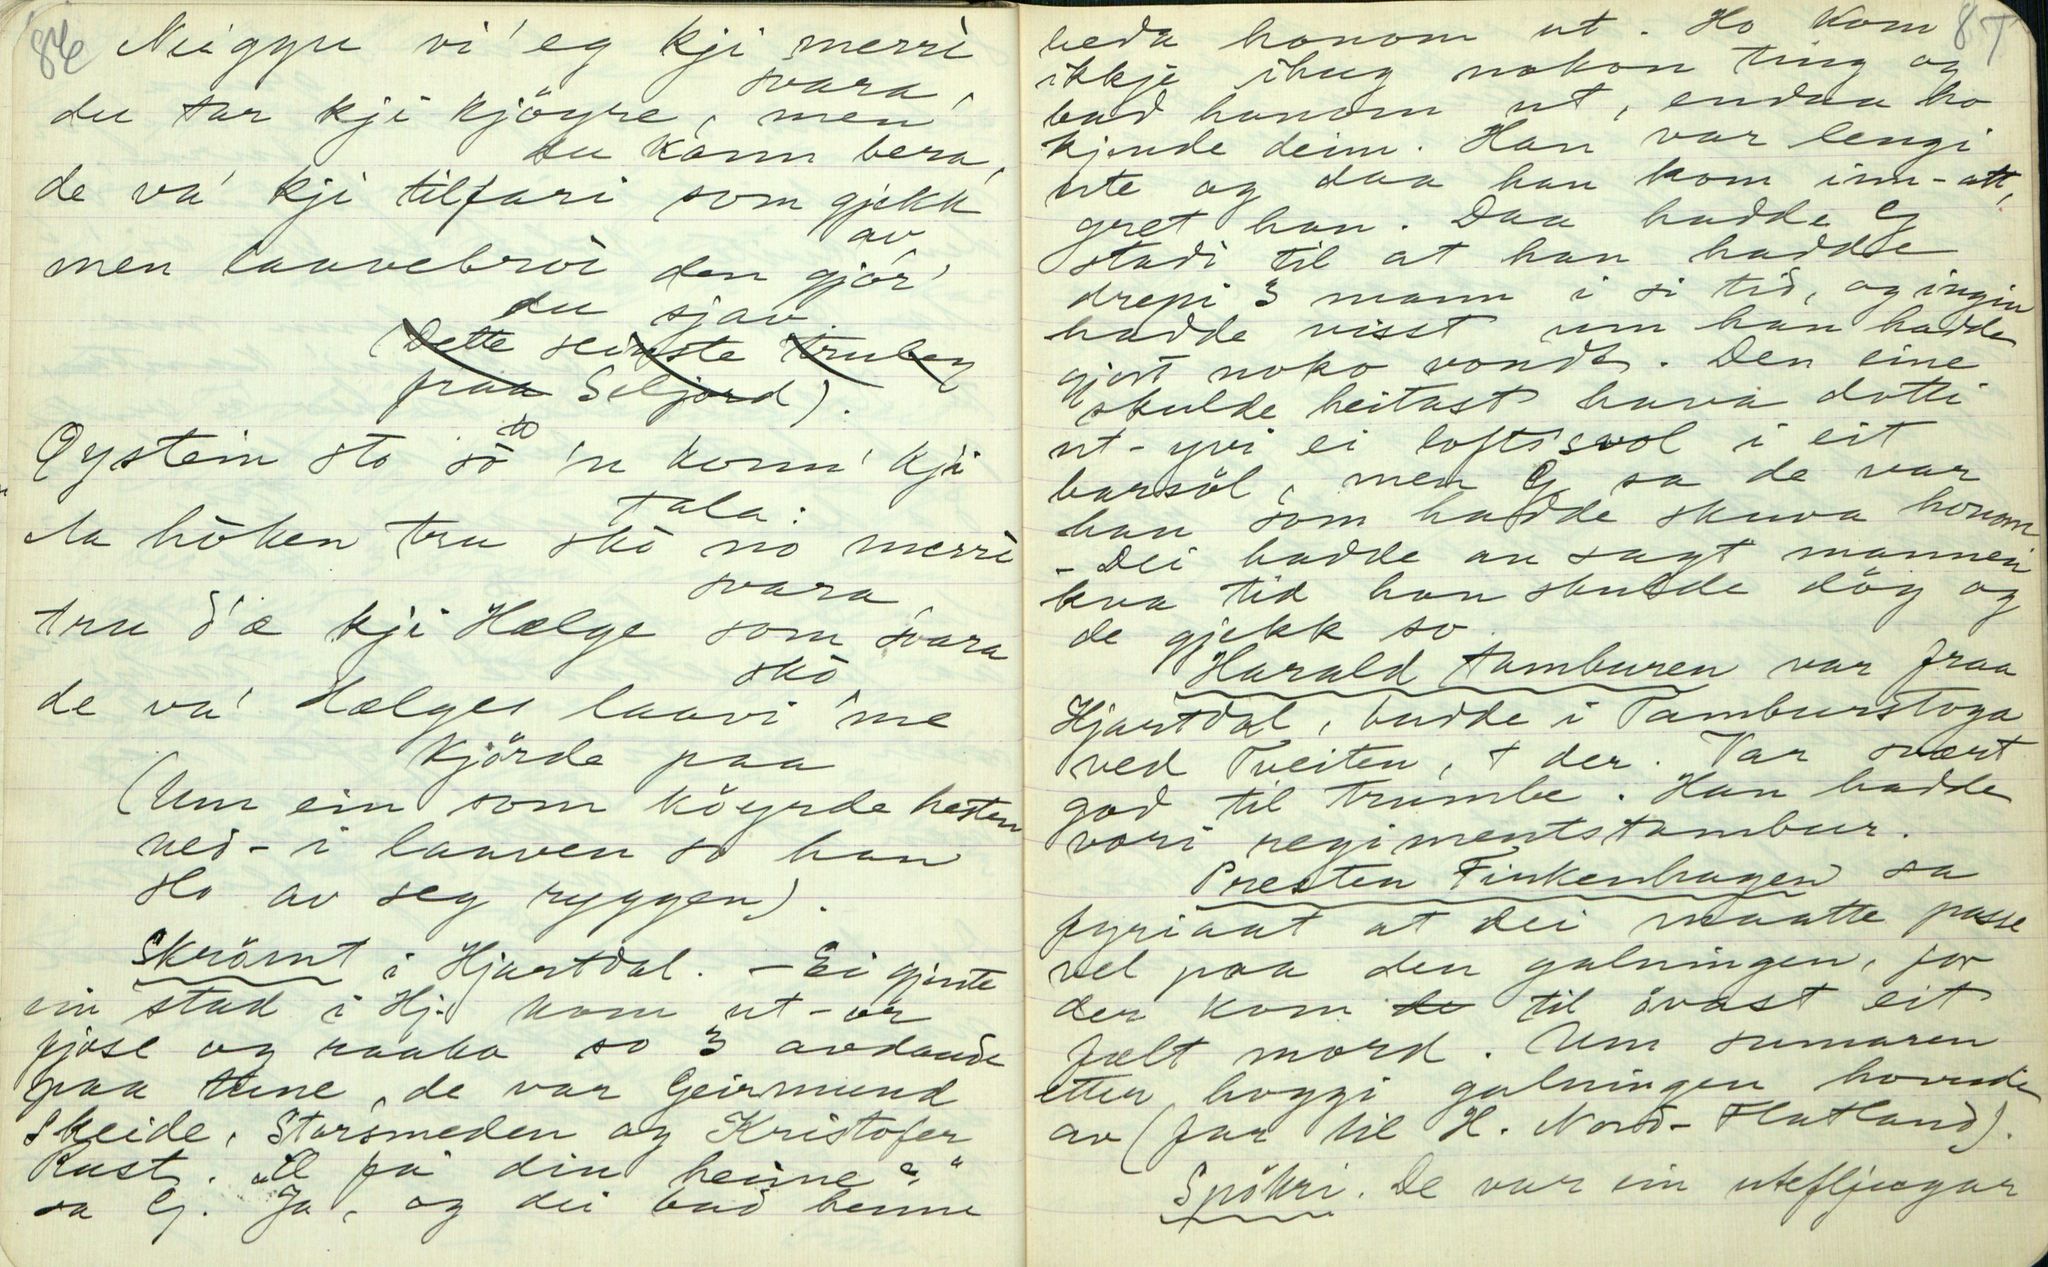 86
Neiggu vi' eg kji merri
svara,
du tar kji kjöyre, men
du kann bera,
de va' kji tilfari som gjekk
av,
men laavebroi den gjor'
du sjav
(Dette seinste truleg
fraa Seljord).
Øystein sto so to 'n konn' kji
tala:
Aa höken tru sko no merri
svara,
tru d'æ kji Hælge som svara
sko
de va' Hælges laavi 'me
kjörde paa
(Um ein som köyrde hesten
ned-i laaven so han
slo av seg ryggen).
Skrömt i Hjartdal. - Ei gjente
ein stad i Hj. kom ut-or
fjøse og raaka so 3 avdaude
paa tune, de var Geirmund
Skeide, Storsmeden og Kristofer
Rust. "Æ få din heime?"
sa G. Ja, og dei bad henne
87
beda honom ut. Ho kom
ikkje ihug nokon ting og
bad honom ut, endaa ho
kjende deim. Han var lengi
ute og daa han kom inn-att,
gret han. Daa hadde G
stadi til at han hadde
drepi 3 mann i si tid, og ingin
hadde visst um han hadde
gjort noko vondt. Den eine
skulde heitast hava dotti
ut-yvi ei loftssvol i eit
barsöl, men G sa de var
han som hadde skuva honom
- Dei hadde an sagt mannen
kva tid han skulde döy og
de gjekk so.
Harald tamburen var fraa
Hjartdal, budde i Tamburstoga
ved Tveiten, + der. Var svært
god til trumbe. Han hadde
vori regimentstambur.
Presten Finkenhagen sa
fyriaat at dei maatte passe
vel paa den galningen, for
der kom de til övast eit
fælt mord. Um sumaren
etter hoggi galningen hovude
av (far til H. Nord-Flatland).
Spökri. De var ein utefljugar